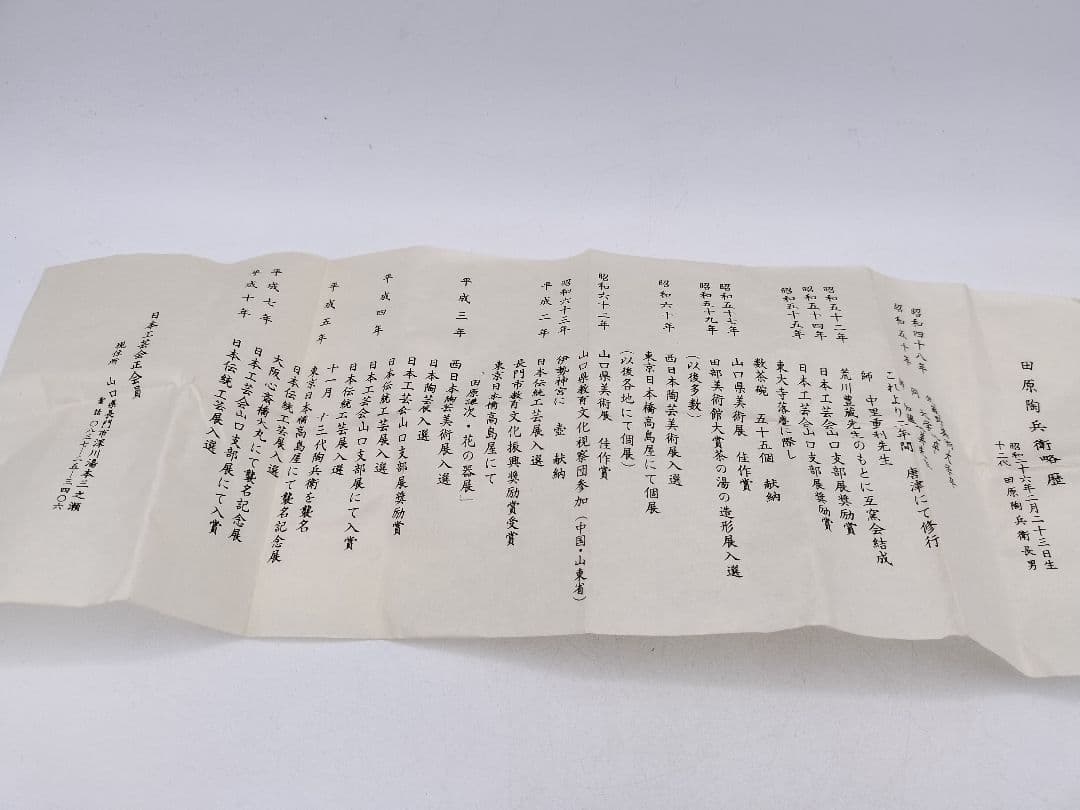 田原陶兵衛略歴
昭和二十六年二月二十三日生
十二代 田原陶兵衛長男
昭和四十八年
昭和五十年
これより二年間 唐津にて修行
師 中里重利先生
荒川豊蔵先生のもとに互窯会結成
昭和五十二年 日本工芸会山口支部展奨励賞
昭和五十四年 日本工芸会山口支部展奨励賞
昭和五十五年 東大寺落慶に際し
数茶碗 五十五個 献納
昭和五十七年 山口県美術展 佳作賞
昭和五十九年 田部美術館大賞茶の湯の造形展入選
(以後多数)
昭和六十年 西日本陶芸美術展入選
東京日本橋高島屋にて個展
(以後各地にて個展)
昭和六十二年 山口県美術展 佳作賞
山口県教育文化視察団参加(中国・山東省)
昭和六十三年 伊勢神宮に 壷 献納
平成二年 日本伝統工芸展入選
長門市教育文化振興奨励賞受賞
東京日本橋高島屋にて
「田原謙次・花の器展」
平成三年 西日本陶芸美術展入選
日本陶芸展入選
日本工芸会山口支部展奨励賞
平成四年 日本伝統工芸展入選
日本工芸会山口支部展にて入賞
日本伝統工芸展入選
平成五年 十一月 十三代陶兵衛を襲名
東京日本橋高島屋にて襲名記念展
日本伝統工芸展入選
大阪心斎橋大丸にて襲名記念展
平成七年 日本工芸会山口支部展にて入賞
平成十年 日本伝統工芸展入選
日本工芸会正会員
現住所 山口県長門市深川湯本三之瀬